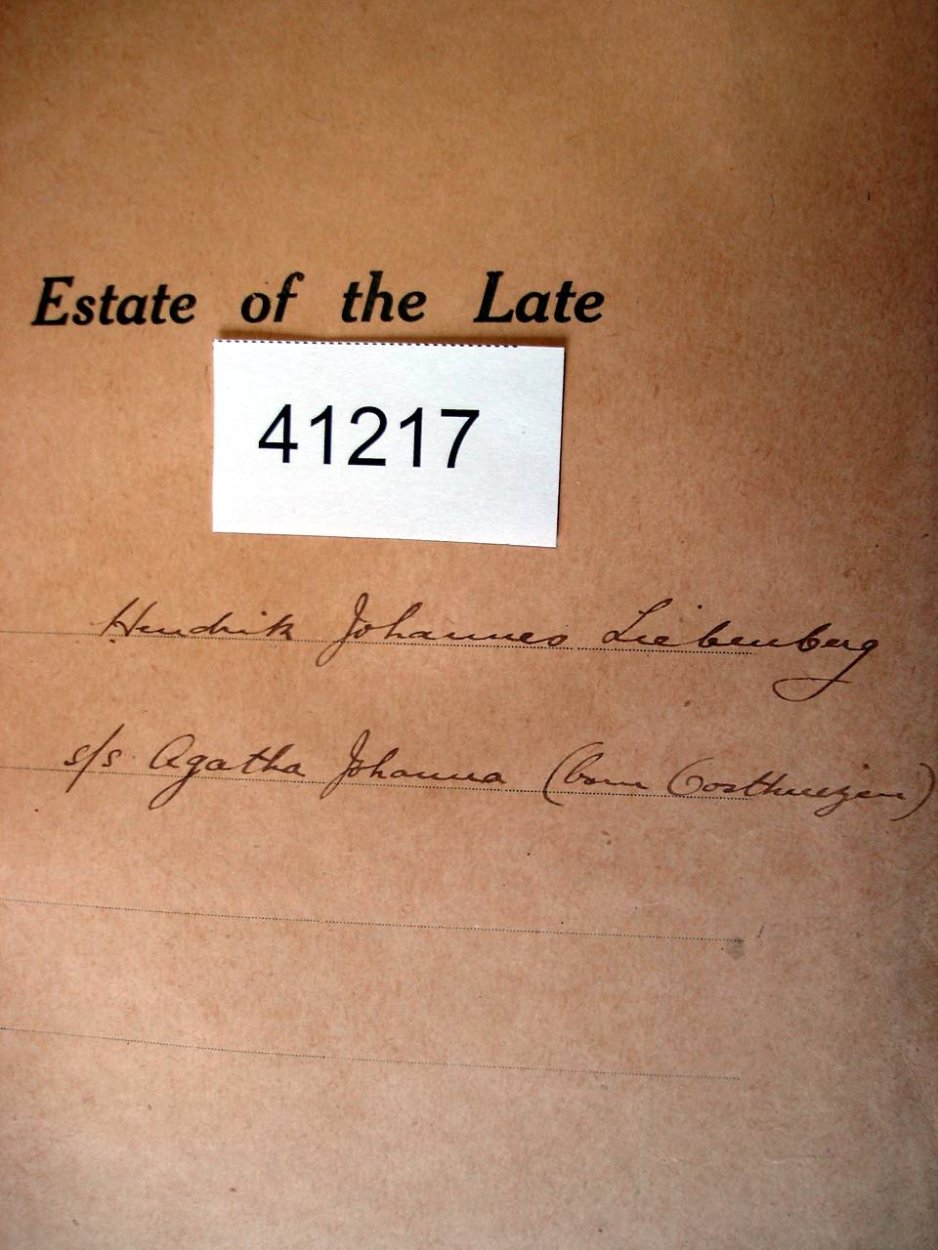 Estate of the Late
41217
Hendrik Johannes Liebenberg
s/s Agatha Johanna (born Oosthuizen)